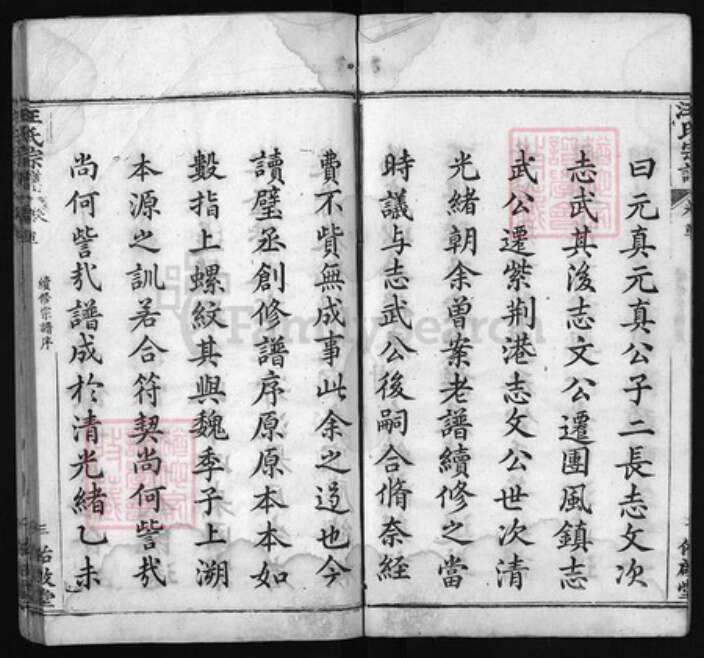 汪氏宗譜
曰元真元真公子二長志文次
志武其後志文公遷團風鎮志
武公遷紫荆港志文公世次清
光緒朝余曾案老譜續修之當
時議与志武公後嗣合脩奈經
費不貲無成事此余之過也今
讀璧丞創修譜序原原本本如
數指上螺紋其與魏季子上溯
本源之訓若合符契尚何訾㢤
尚何訾㢤譜成於清光緒乙未
汪氏宗譜
續修宗譜序
三
FamilySearch